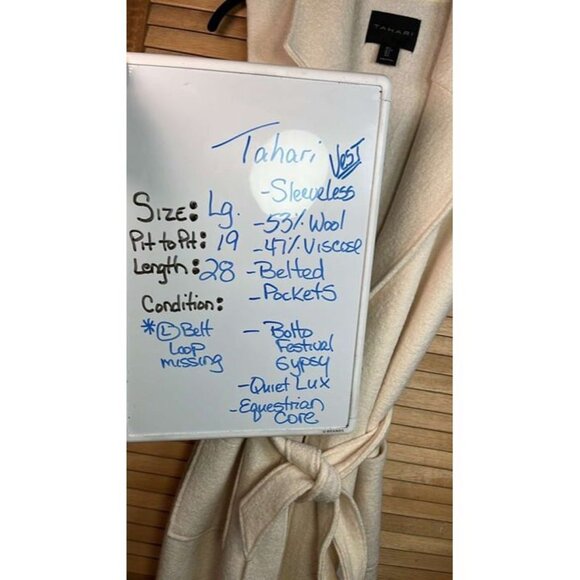 TAHARI
Tahari Vest
- Sleeveless
- 53% Wool
- 47% Viscose
- Belted
- Pockets
- Botto
Festival
Gypsy
- Quiet Lux
- Equestrian
Core
Size: Lg.
Pit to Pit: 19
Length: 28
Condition:
* (L) Belt
Loop
missing